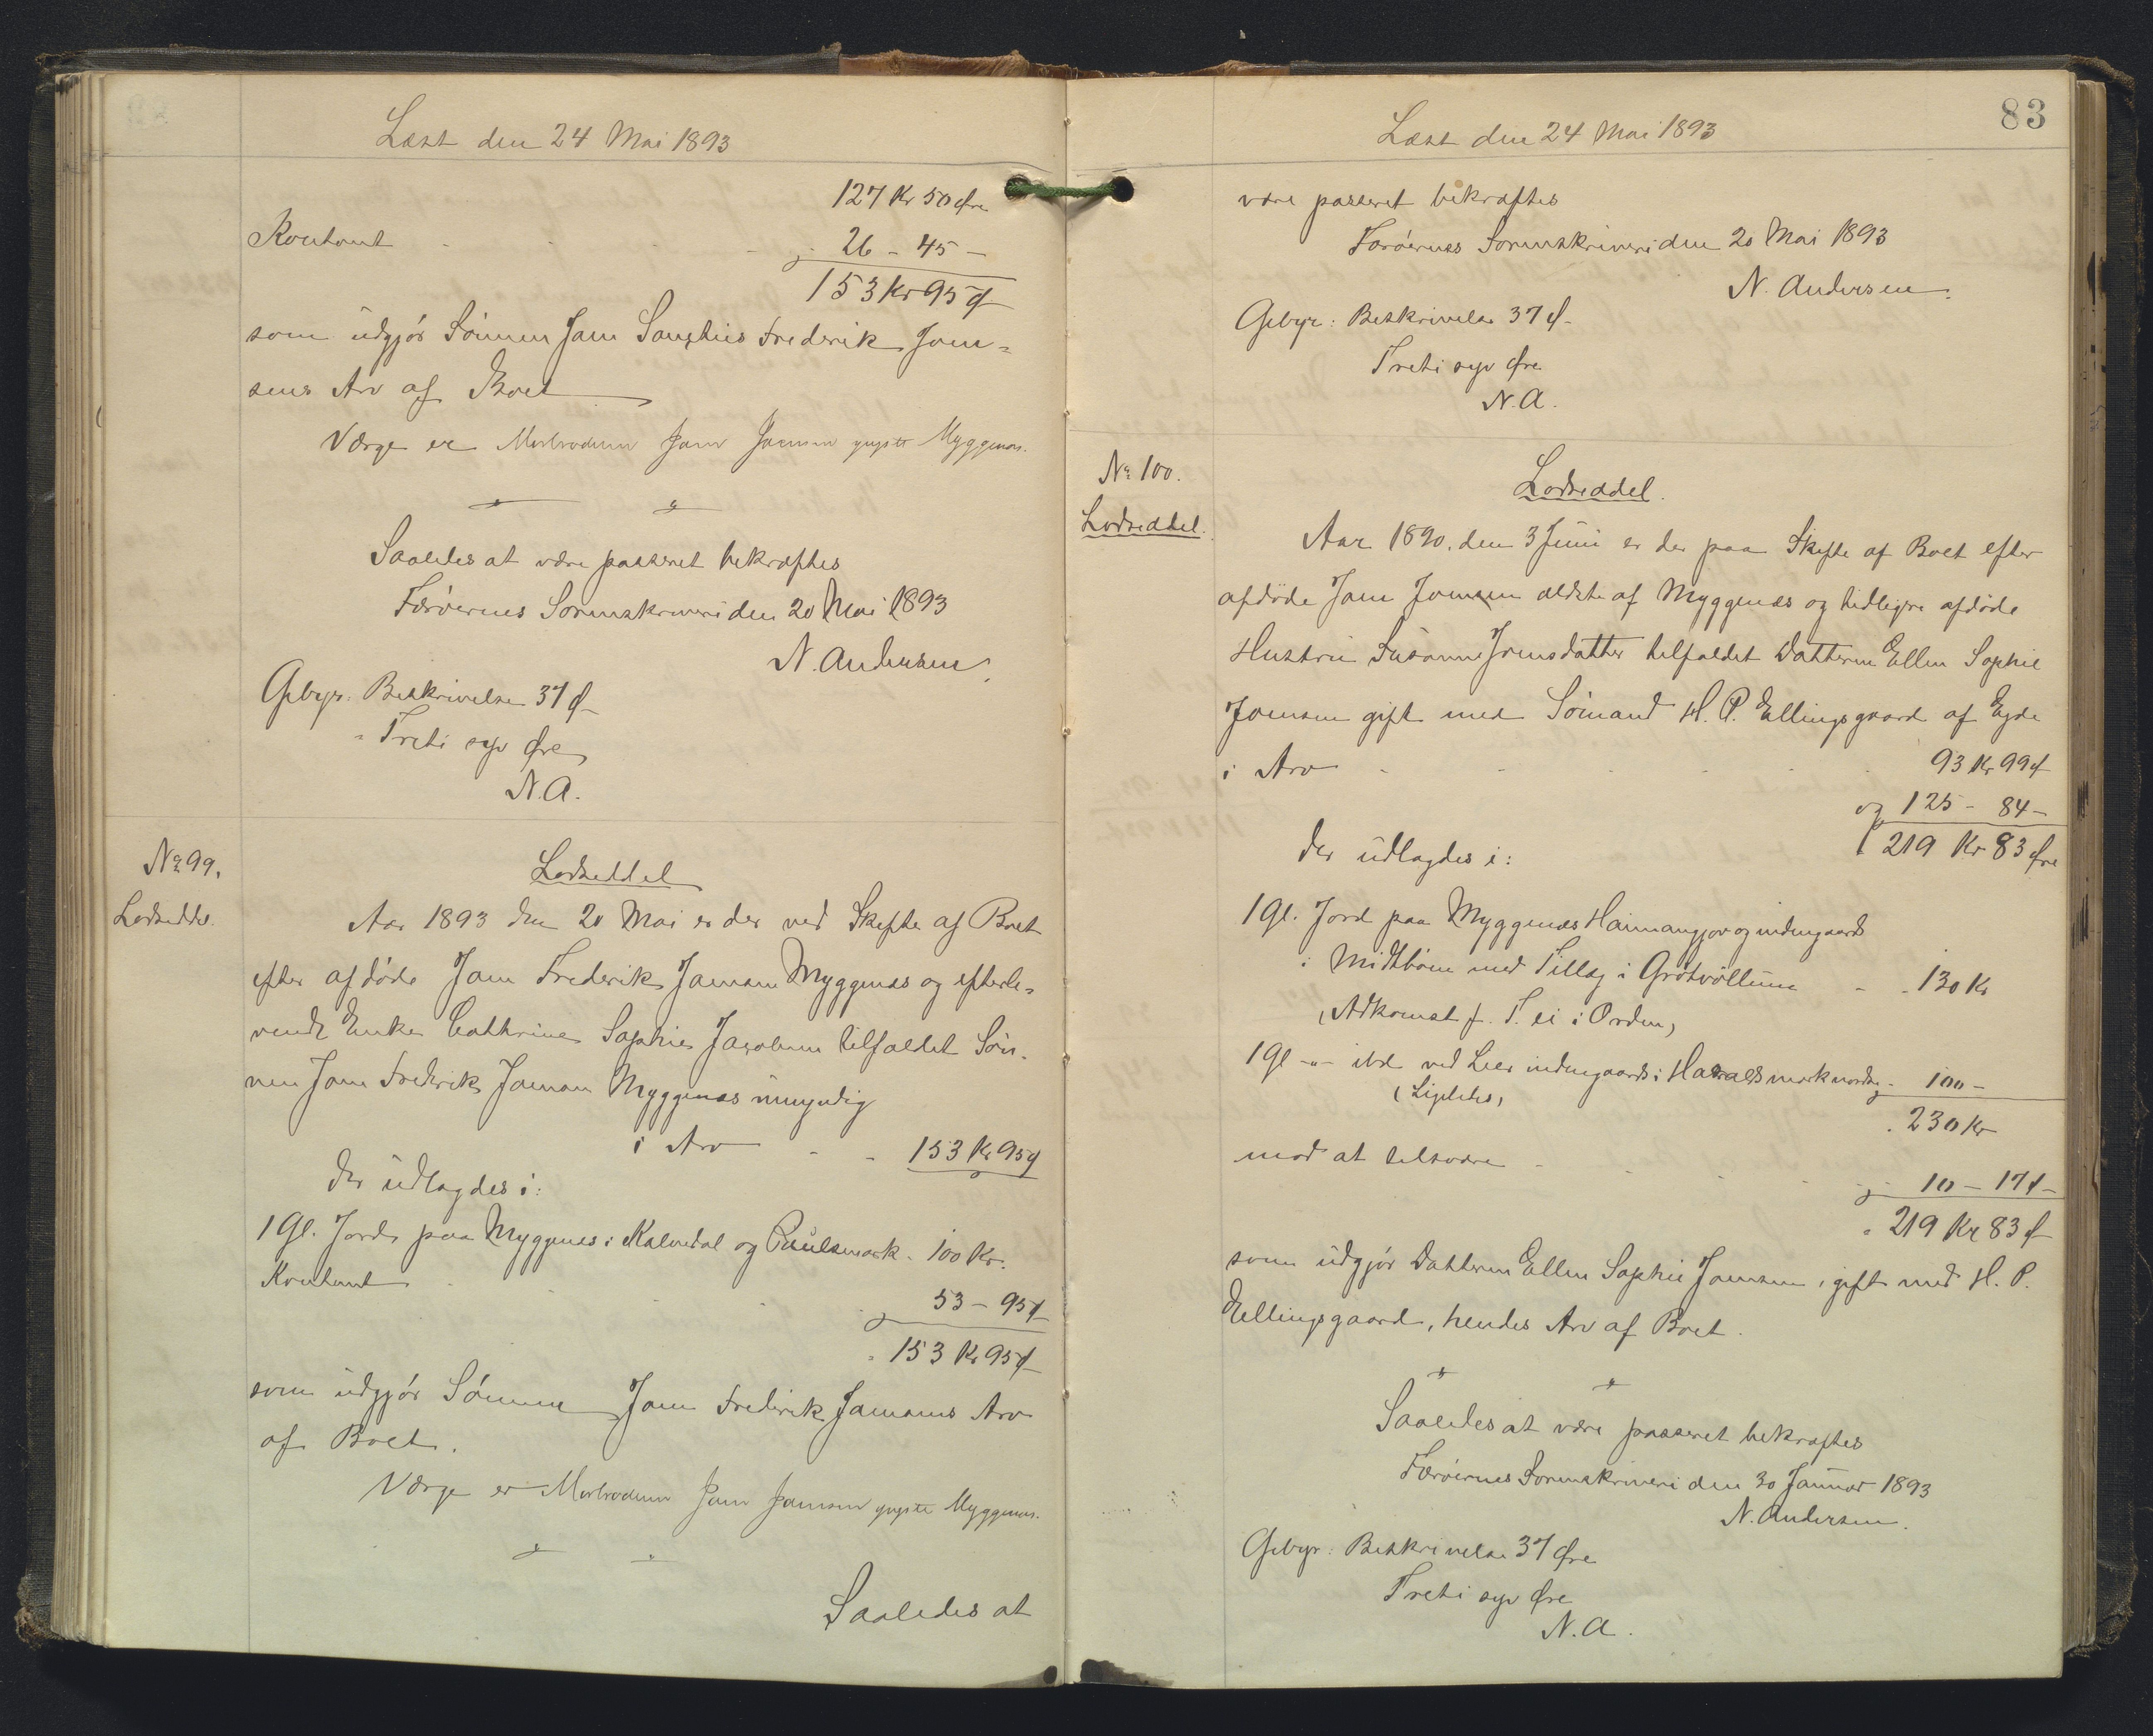 Læst den 24 Mai 1893
127 Kr 50 Øre
Kontant - - - - 26 - 45 -
153 Kr 95 Ø
som udgjør Sønnen Joen Frederik Joen=
sens Arv af Boet
Værge er Morbroderen Joen Joensen yngste Myggenæs.
Saaledes at være passeret bekræftes
Færøernes Sorenskriveri den 20 Mai 1893
N. Andersen.
Gebyr: Beskrivelse 37 Ø
Treti syv Øre
N.A.
No 99.
Lodseddel.
Lodseddel
Aar 1893 den 20 Mai er der ved Skifte af Boet
efter afdøde Joen Frederik Joensen Myggenæs og efterle=
vende Enke Cathrine Sophie Jacobsen tilfaldet Søn=
nen Joen Frederik Joensen Myggenæs umyndig
i Arv - - 153 Kr 95 Ø
der udlagdes i:
1 Gl. Jord paa Myggenæs i Kalvedal og Paulsmark - 100 Kr.
Kontant - - - - 53 - 95 Ø
153 Kr 95 Ø
som udgjør Sønnen Joen Frederik Joensens Arv
af Boet.
Værge er Morbroderen Joen Joensen yngste Myggenæs.
Saaledes at
83
Læst den 24 Mai 1893
være passeret bekræftes
Færøernes Sorenskriveri den 20 Mai 1893
N. Andersen.
Gebyr: Beskrivelse 37 Ø
Treti syv Øre
N.A.
No 100.
Lodseddel.
Lodseddel.
Aar 1890, den 3 Juni er der paa Skifte af Boet efter
afdøde Joen Joensen ældste af Myggenæs og tidligere afdøde
Hustru Susanne Joensdatter tilfaldet Datteren Ellen Sophie
Joensen gift med Sømand H. P. Ellingsgaard af Eyde
i Arv - - - - 93 Kr 99 Ø
og 125 - 84 -
219 Kr 83 Øre
der udlagdes i:
1 Gl. Jord paa Myggenæs Haimangjov og indengaards
i Midtbøen med Tillæg i Grøtvøllum - - 130 Kr
(Adkomst f. T. ei i Orden)
1 Gl -"- ibd ved Leer indengaards i Haraldsmark nordre - 100 -
(Ligeledes)
230 Kr
mod at tilsvare - - - - 10 - 17 Ø -
219 Kr 83 Ø
som udgjør Datteren Ellen Sophie Joensen, gift med H. P.
Ellingsgaard, hendes Arv af Boet.
Saaledes at være passeret bekræftes
Færøernes Sorenskriveri den 30 Januar 1893
N. Andersen.
Gebyr: Beskrivelse 37 Øre
Treti syv Øre
N.A.